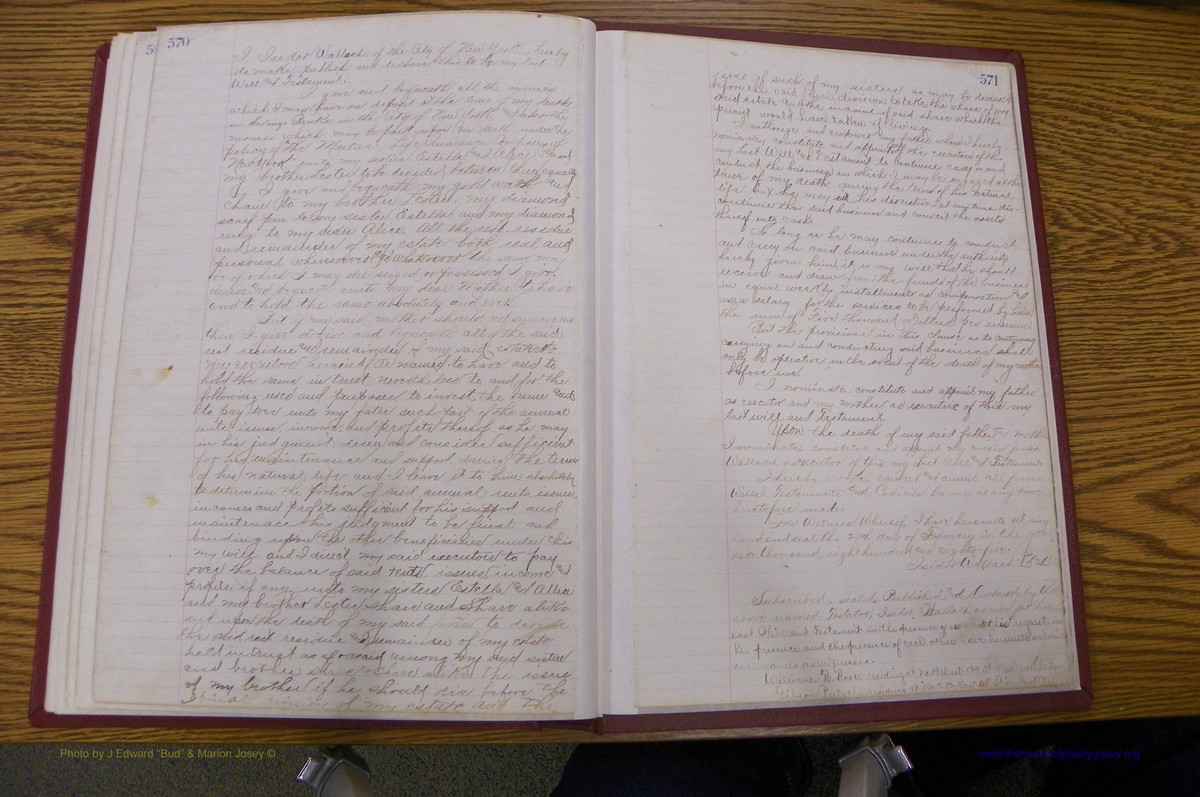 570
I Isidor Wallach of the City of New York, hereby
do make publish and declare this to be my last
Will and Testament.
I give and bequeath all the monies
which I may have on deposit at the time of my death
in Savings Banks in the City of New York, also the
monies which may be paid upon my death under the
policy of the Mutual Life Insurance Company of
New York unto my sisters Estella and Alice and
my brother Lester to be divided between them equally
I give and bequeath my gold watch and
chain to my brother Lester, my diamond
scarf pin to my sister Estella and my diamond
ring to my sister Alice. All the rest residue
and remainder of my estate both real and
personal wheresoever and whatsoever the same may
be of which I may die seized or possessed I give
devise and bequeath unto my dear Mother to have
and to hold the same absolutely and ever
But if my said mother should not survive me
then I give devise and bequeath all of the said
rest residue and remainder of my said estate to
my executor hereinafter named to have and to
hold the same in trust nevertheless to and for the
following uses and purposes to invest the same and
to pay over unto my father such part of the annual
rents issues income and profits thereof as he may
in his judgment deem and consider sufficient
for his maintenance and support during the term
of his natural life and I leave it to him absolutely
to determine the portion of said annual rents issues
incomes and profits sufficient for his support and
maintenance his judgment to be final and
binding upon the other beneficiaries under this
my will and I direct my said executors to pay
over the balance of said rents, issues, income and
profits if any unto my sisters Estella and Alice
and my brother Lester share and share alike
and upon the death of my said father to divide
the said rest residue and remainder of my estate
held in trust as aforesaid among my said sisters
and brother share and share alike the issue
of my brother if he should die before the
final division of my estate and the
571
issue of such of my sisters as may be deceased
before the said final division to take the share of my
said estate and the income of said share which the
parent would have taken if living.
I authorize and empower my father whom I hereby
nominate, constitute and appoint the executor of this
my Last Will and Testament to continue carry on and
conduct the business in which I may be engaged at the
time of my death, during the term of his natural
life but he may at his discretion at any time dis-
continue the said business and convert the assets
thereof into cash.
So long as he may continue to conduct
and carry on said business under the authority
hereby given him it is my will that he should
receive and draw from the funds of the business
in equal weekly installments as compensation and
as a salary for the services to be performed by him
the sum of Five thousand Dollars per annum
But the provisions in this clause as to continuing
carrying on and conducting said business shall
only be operative in the event of the death of my mother
before me.
I nominate, constitute and appoint my father
as executor and my mother as executrix of this my
last will and Testament.
Upon the death of my said father and mother
I nominate constitute and appoint my cousin
Wallach as executor of this my last Will and Testament
I hereby revoke cancel and annul all former
Wills Testaments and Codicils by me at any time
heretofore made.
In Witness Whereof, I have hereunto set my
hand and seal the 24 day of February in the year
one thousand eight hundred and eighty five.
Isidor Wallach
Subscribed, sealed, Published and declared by the
above named Testator, Isidor Wallach as and for his
last Will and Testament in the presence of us who at his request in
his presence and the presence of each other have hereunto subscribed
our names as witnesses.
William residing at No 19 West
residing at No
Photo by J Edward "Bud" & Marion Josey ©